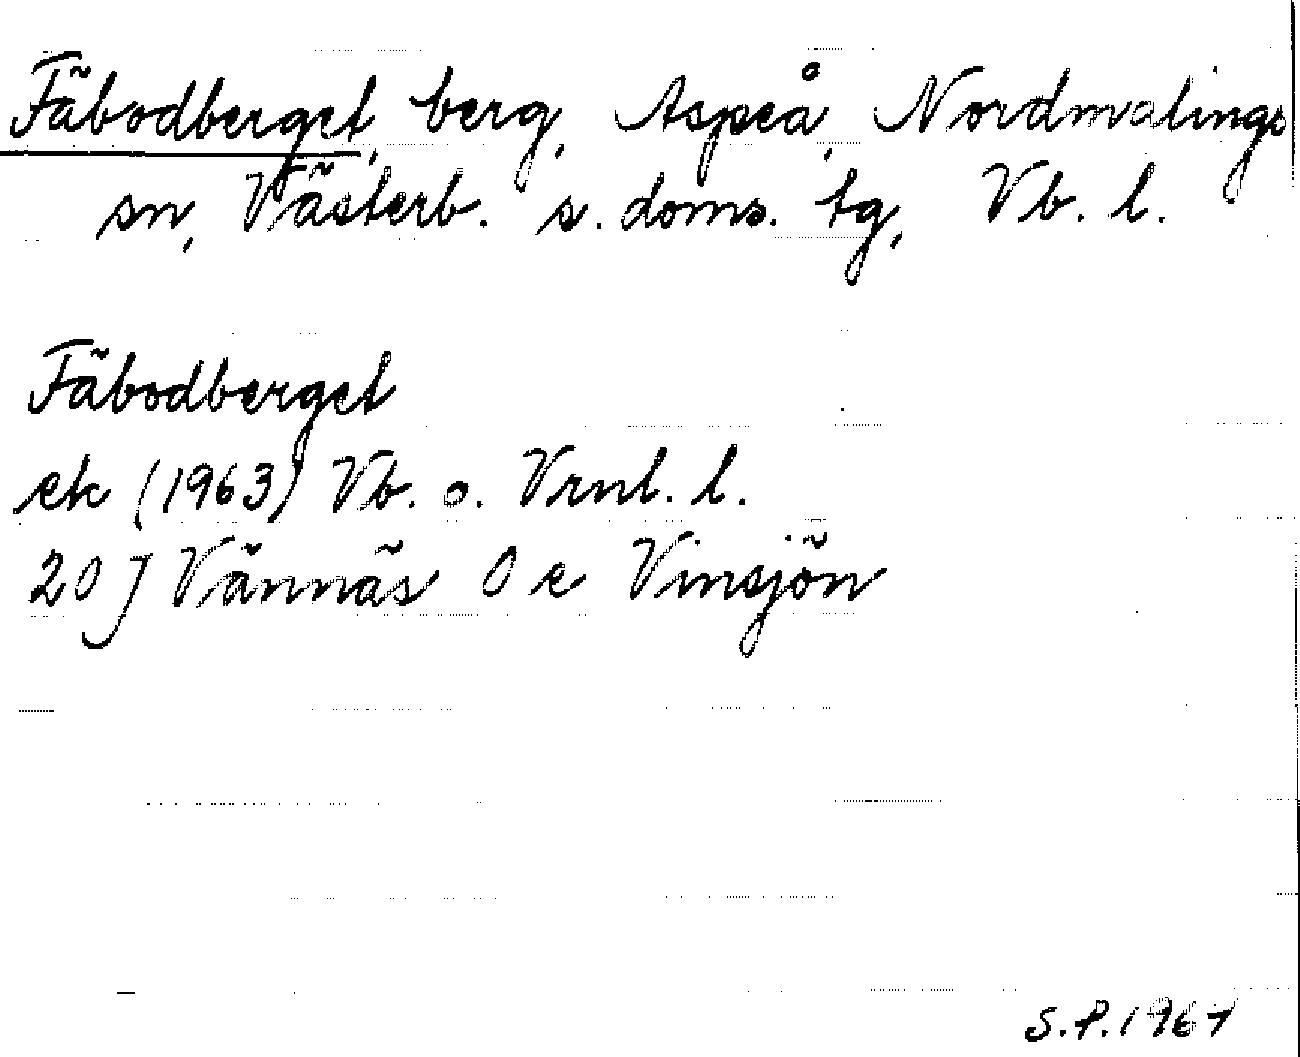 Fäbodberget, berg, Aspeå, Nordmalings
sn, Västerb. s. doms. tg, Vb. l.
Fäbodberget
ek (1963) Vb. o. Vrnl. l.
20 J Vännäs 0 e Vinsjön
S.P. 1967